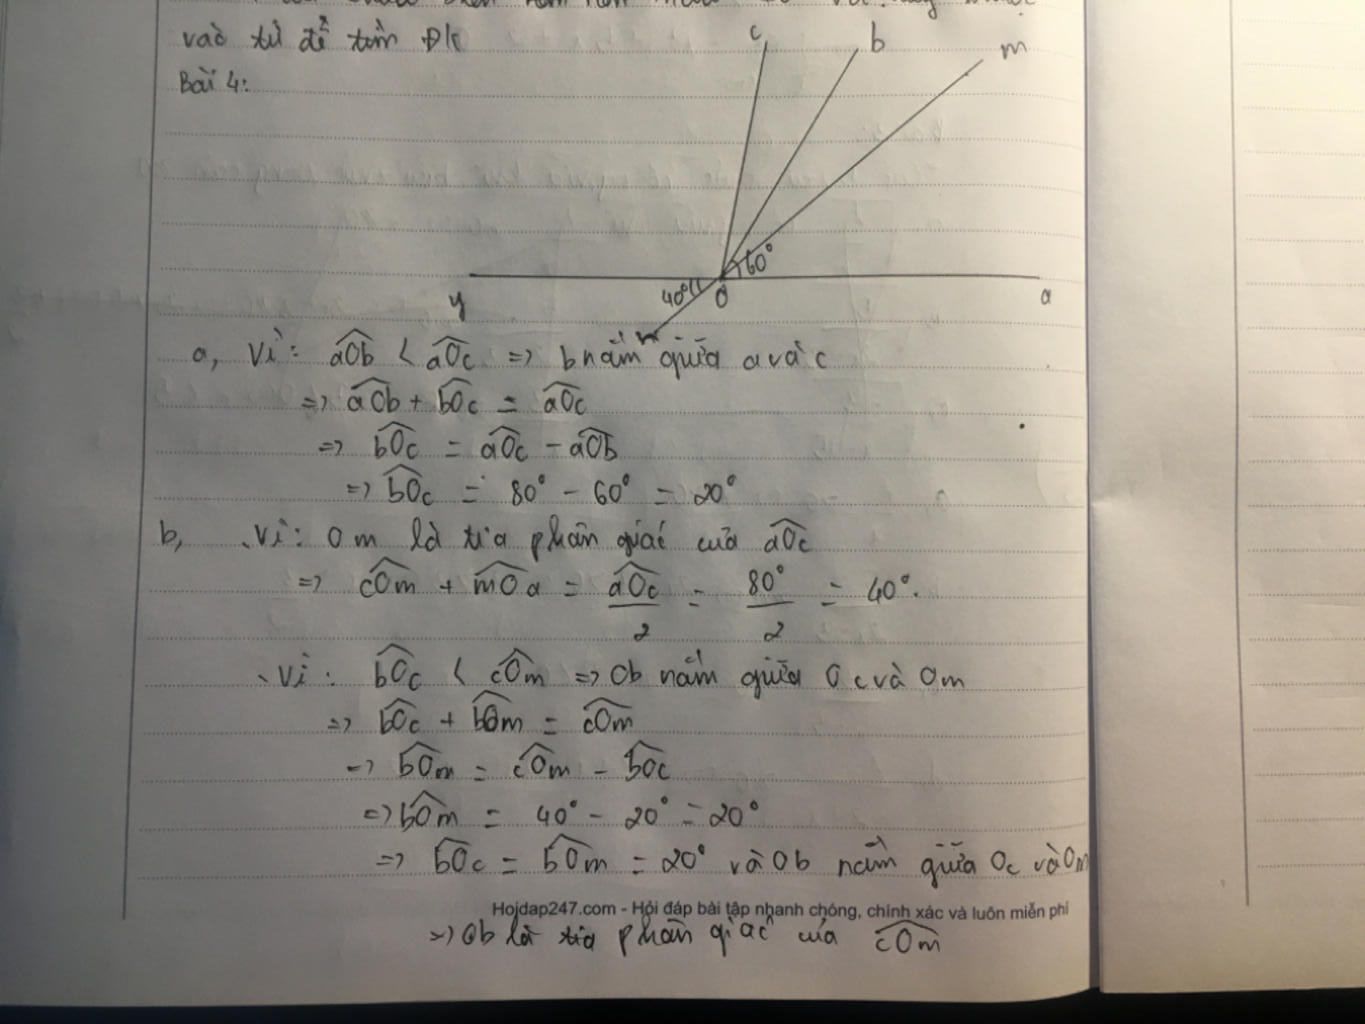 vào tử để tìm ĐK
Bài 4:
c
b
m
60°
40°
O
y
a
n
a, Vì: aOb < aOc => b nằm giữa a và c
=> aOb + bOc = aOc
=> bOc = aOc - aOb
=> bOc = 80° - 60° = 20°
b, Vì: Om là tia phân giác của aOc
=> cOm + mOa = aOc/2 = 80°/2 = 40°.
Vì: bOc < cOm => Ob nằm giữa Oc và Om
=> bOc + bOm = cOm
=> bOm = cOm - bOc
=> bOm = 40° - 20° = 20°
=> bOc = bOm = 20° và Ob nằm giữa Oc và Om
Hoidap247.com - Hỏi đáp bài tập nhanh chóng, chính xác và luôn miễn phí
=> Ob là tia phân giác của cOm